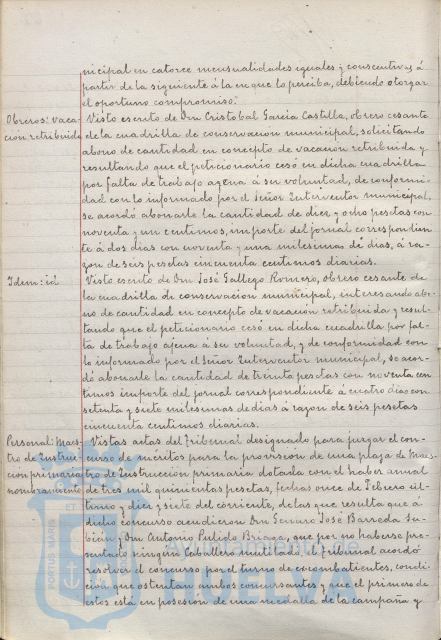 nicipal en catorce mensualidades iguales y consecutivas á
partir de la siguiente á la en que lo perciba, debiendo otorgar
el oportuno compromiso.
Obreros: vaca- Visto escrito de Don Cristobal Garcia Castilla, obrero cesante
ción retribuida de la cuadrilla de conservacion municipal, solicitando
abono de cantidad en concepto de vacación retribuida y
resultando que el peticionario cesó en dicha cuadrilla
por falta de trabajo agena á su voluntad, de conformi-
dad con lo informado por el Señor Interventor municipal,
se acordó abonarle la cantidad de diez y ocho pesetas con
noventa y un centimos, importe del jornal correspondien-
te á dos dias con noventa y una milesimas de dias, á ra-
zon de seis pesetas cincuenta centimos diarias.
Idem: id Visto escrito de Don José Gallego Romero, obrero cesante de
la cuadrilla de conservacion municipal, interesando abo-
no de cantidad en concepto de vacación retribuida y resul-
tando que el peticionario cesó en dicha cuadrilla por fal-
ta de trabajo ajena á su voluntad, y de conformidad con
lo informado por el Señor Interventor municipal, se acor-
dó abonarle la cantidad de treinta pesetas con noventa cen-
timos importe del jornal correspondiente á cuatro dias con
setenta y siete milesimas de dias á razon de seis pesetas
cincuenta centimos diarias.
Personal: Maes- Vistas actas del Tribunal designado para juzgar el con-
tro de Instruc- curso de meritos para la provision de una plaza de Maes-
cion primaria tro de Instruccion primaria dotada con el haber anual
nombramiento de tres mil quinientas pesetas, fechas once de Febrero úl-
timo y diez y siete del corriente, de las que resulta que á
dicho concurso acudieron Don Genaro José Barreda
y Don Antonio Pulido que por no haberse pre-
sentado ningun Caballero mutilado, el Tribunal acordó
resolver el concurso por el turno de excombatientes, condi-
cion que ostentan ambos concursantes y que el primero de
estos está en posesion de una medalla de la campaña y
PORTUS MARIS ET